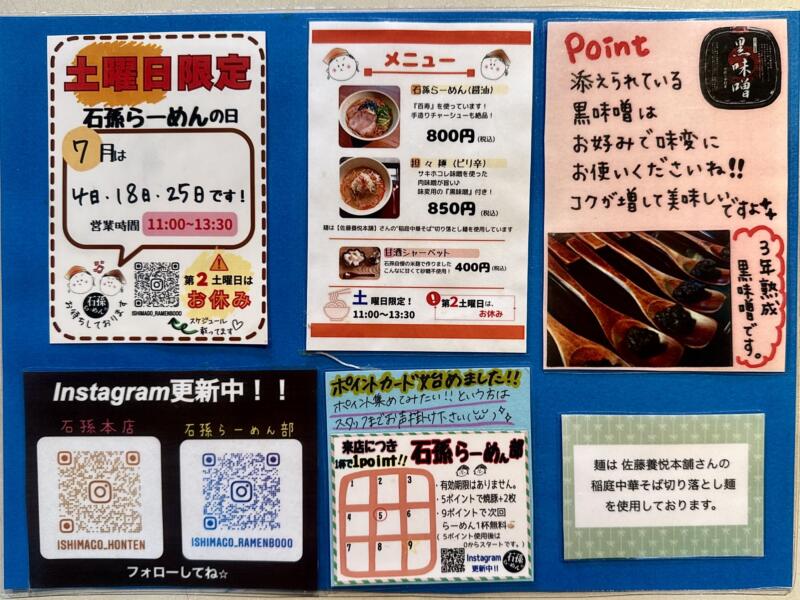 土曜日限定
石孫らーめんの日
7月は
4日・18日・25日です!
営業時間 11:00~13:30
石孫
らーめん部
お待ちしております
ISHIMAGO_RAMENBOOO
第2土曜日は
お休み
スケジュール
載ってます♡
メニュー
石孫らーめん(醤油)
『百寿』を使っています!
手造りチャーシューも絶品!
800円(税込)
担々麺(ピリ辛)
サキホコレ味噌を使った
肉味噌が旨い♪
味変用の『黒味噌』付き!
850円(税込)
麺は【佐藤養悦本舗】さんの"稲庭中華そば"切り落とし麺を使用しています
甘酒シャーベット
石孫自慢の米麹で作りました
こんなに甘くて砂糖不使用!
400円(税込)
土曜日限定!
11:00~13:30
第2土曜日は、
お休み
Point
黒味噌
添えられている
黒味噌は
お好みで味変に
お使いくださいね!!
コクが増して美味しい
ですよ
3年熟成
黒味噌です。
Instagram更新中!!
石孫本店
石孫らーめん部
ISHIMAGO_HONTEN
ISHIMAGO_RAMENBOOO
フォローしてね☆
ポイントカード始めました!!
ポイント集めてみたい!!という方は
スタッフまでお声掛け下さい
来店につき
1杯で1point!!
石孫らーめん部
1 2 3
4 5 6
7 8 9
・有効期限はありません。
・5ポイントで焼豚+2枚
・9ポイントで次回
らーめん1杯無料
(5ポイント使用後は
0からスタートです。)
Instagram
更新中!!
石孫
らーめん部
麺は 佐藤養悦本舗さんの
稲庭中華そば切り落とし麺
を使用しております。